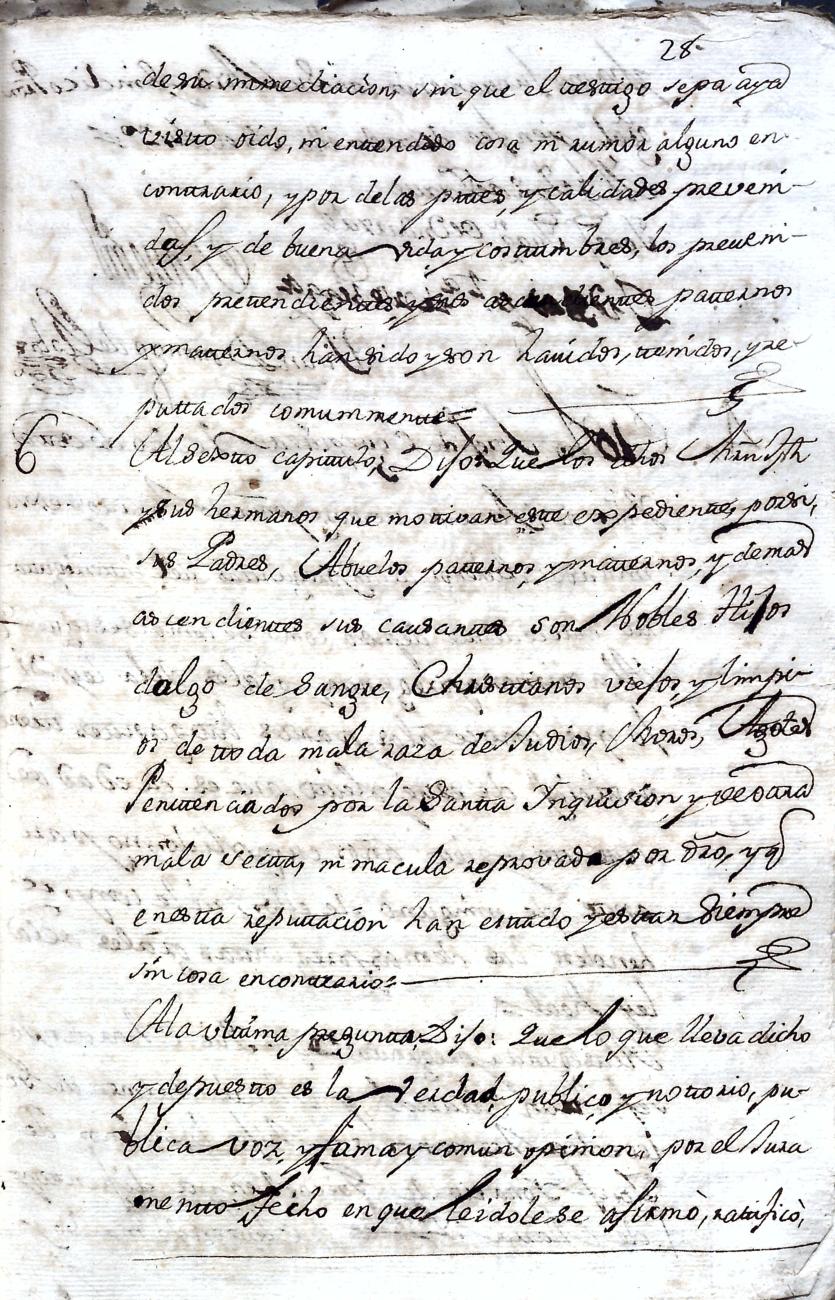 28
de su immediacion, sin que el testigo sepa aya
visto oido, ni entendido cosa ni rumor alguno en
contrario, y por de las prttes, y calidades preveni-
das, y de buena vida y costtumbres, los preveni-
dos prettendienttes, y sus ascendienttes patternos
y matternos han sido y son havidos, ttenidos, y re-
puttados comunmentte=
6 Al sextto capitulo, Dijo: Que los dhos Jph
y sus hermanos que mottivan este expediente, por si,
sus Padres, Abuelos patternos, y matternos, y demas
ascendienttes sus causanttes son Nobles Hijos
dalgo de Sangre, Christtianos viejos, y limpi-
os de ttoda mala raza de Judios, Moros, Agotes
Penitenciados por la Santta Inquisicion, y de otra
mala Sectta, ni macula reprovada por dro, y q
en estta reputtacion han esttado y esttan Siempre
sin cosa en conttrario=
A la ulttima pregunta, Dijo: Que lo que lleva dicho
y depuestto es la verdad, publico y nottorio, pu-
blica voz, y fama y comun opinion, por el Jura
mentto fecho en que leidole se afirmò, rattificò,